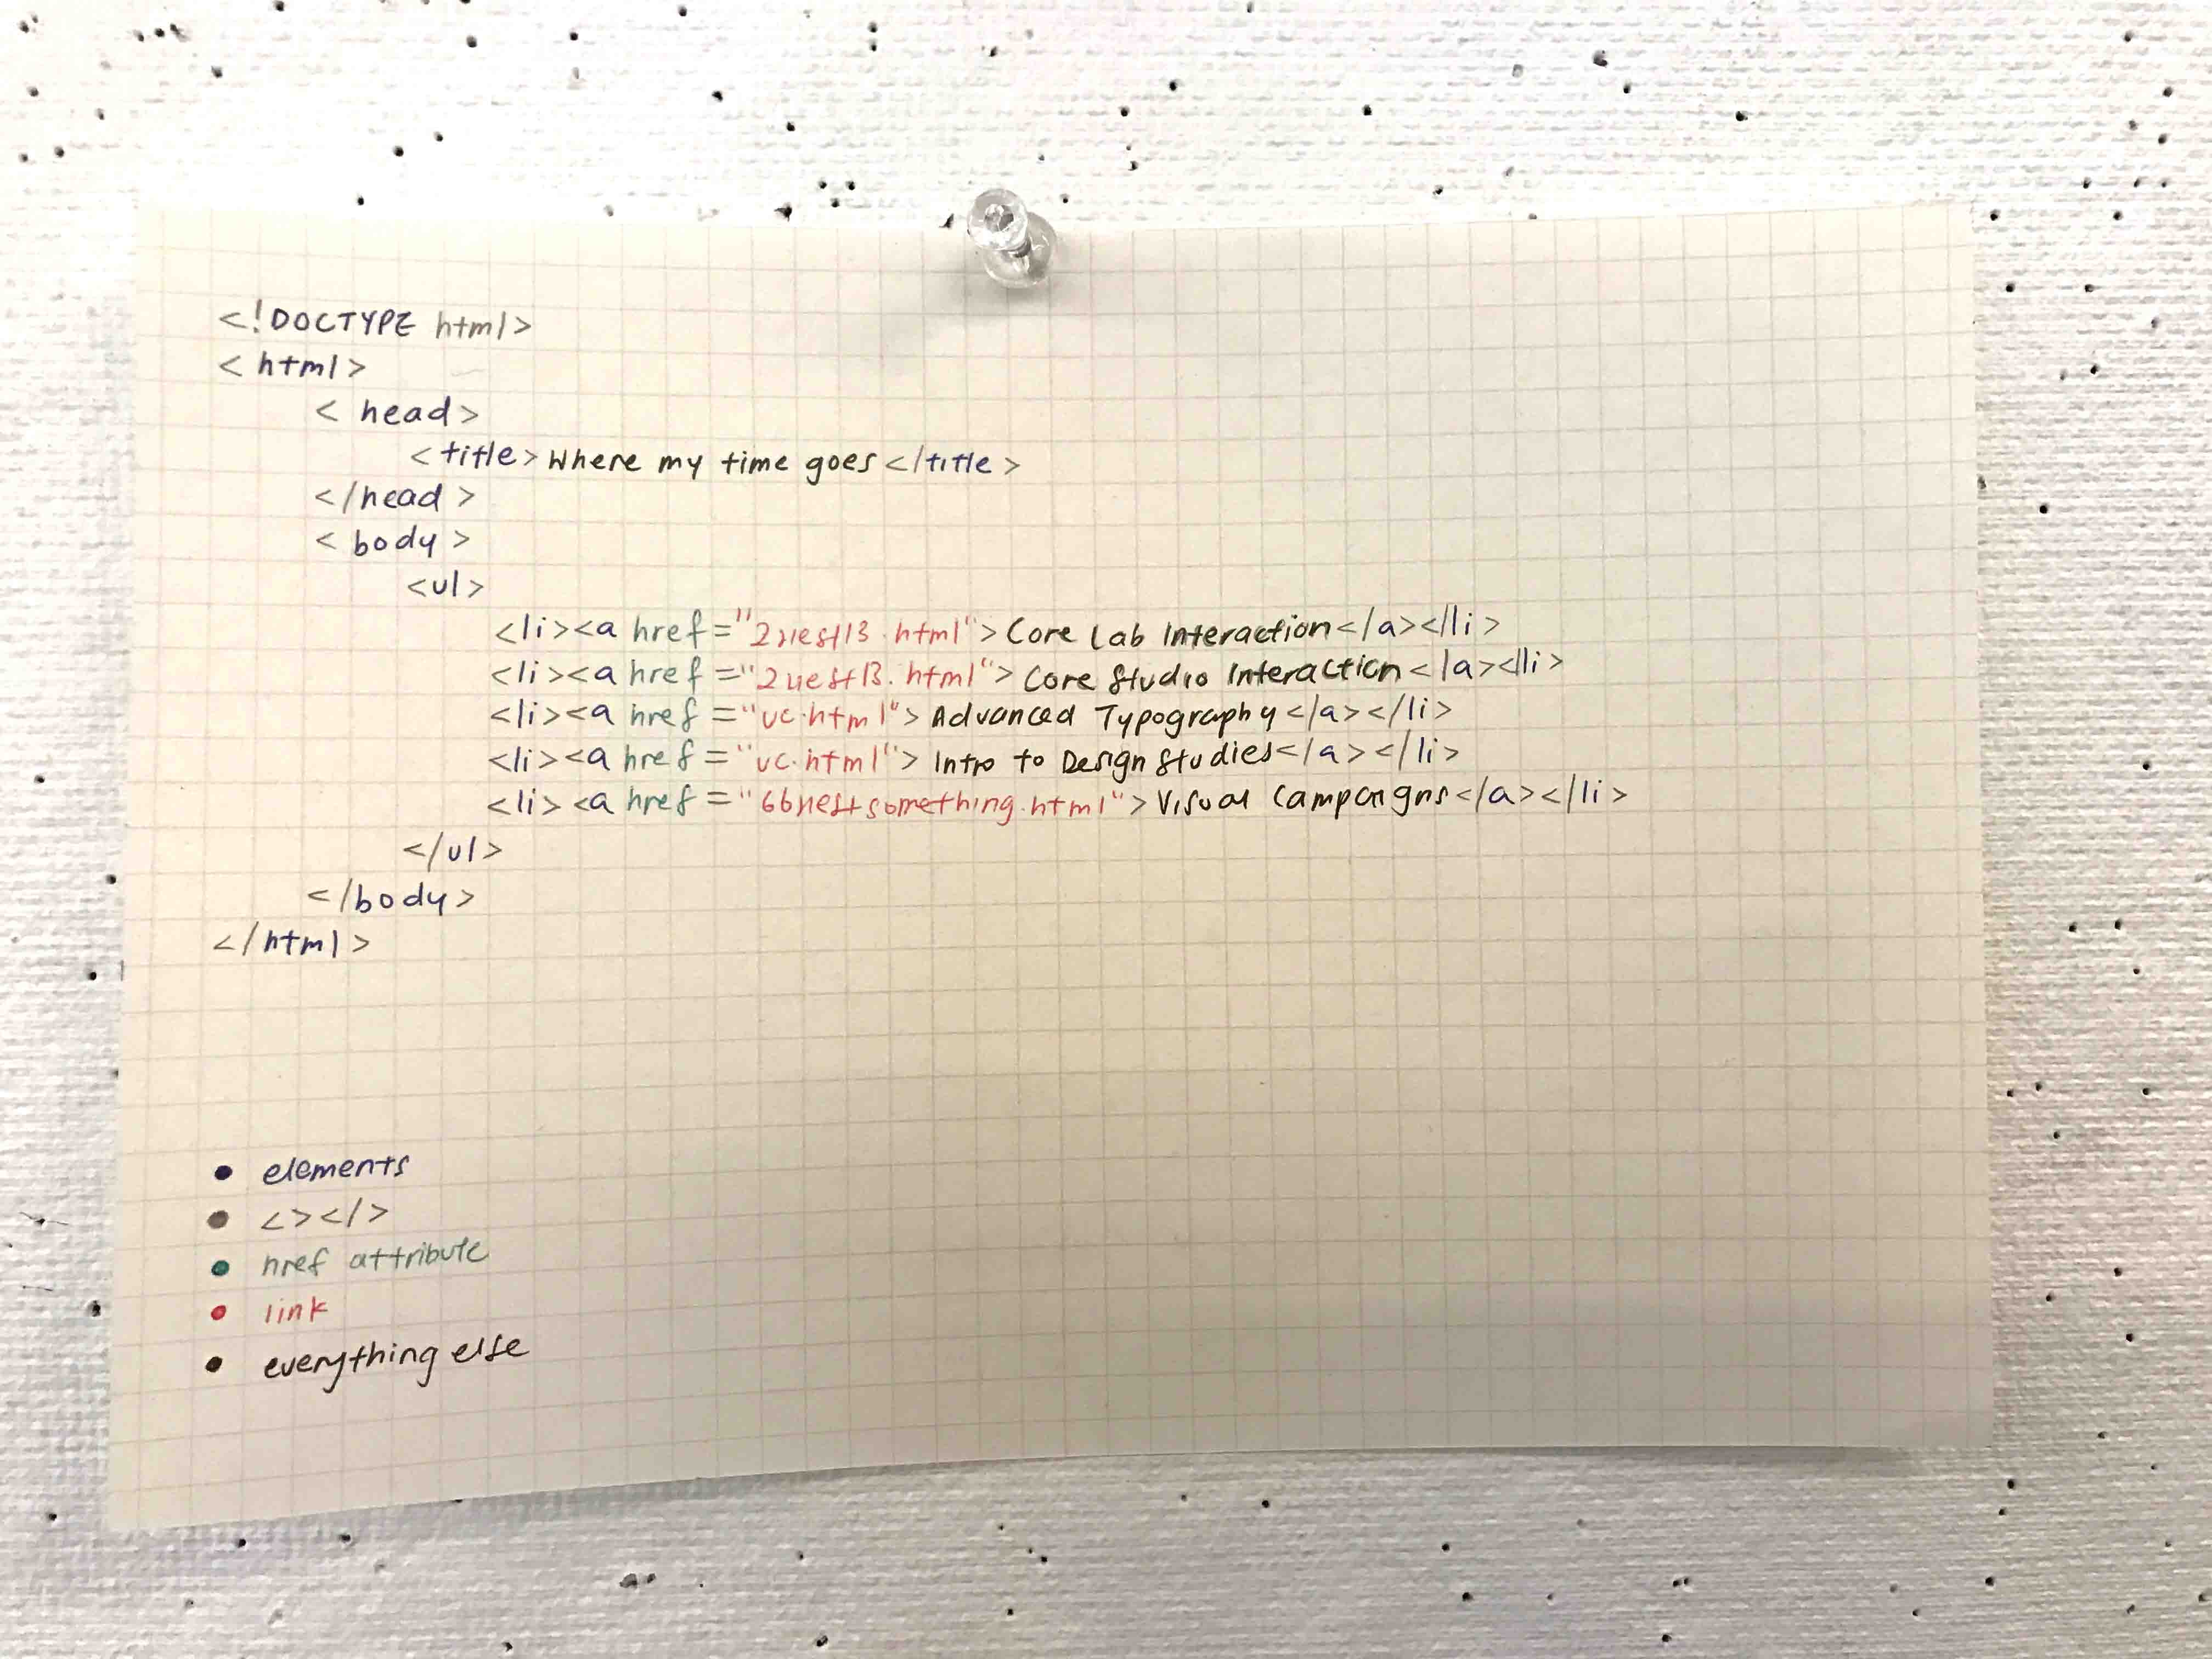 <!DOCTYPE html>
<html>
<head>
<title>Where my time goes</title>
</head>
<body>
<ul>
<li><a href="2west13.html">Core Lab Interaction</a></li>
<li><a href="2west13.html">Core Studio Interaction</a></li>
<li><a href="uc.html">Advanced Typography</a></li>
<li><a href="uc.html">Intro to Design Studies</a></li>
<li><a href="66westsomething.html">Visual Campaigns</a></li>
</ul>
</body>
</html>
• elements
• <></>
• href attribute
• link
• everything else